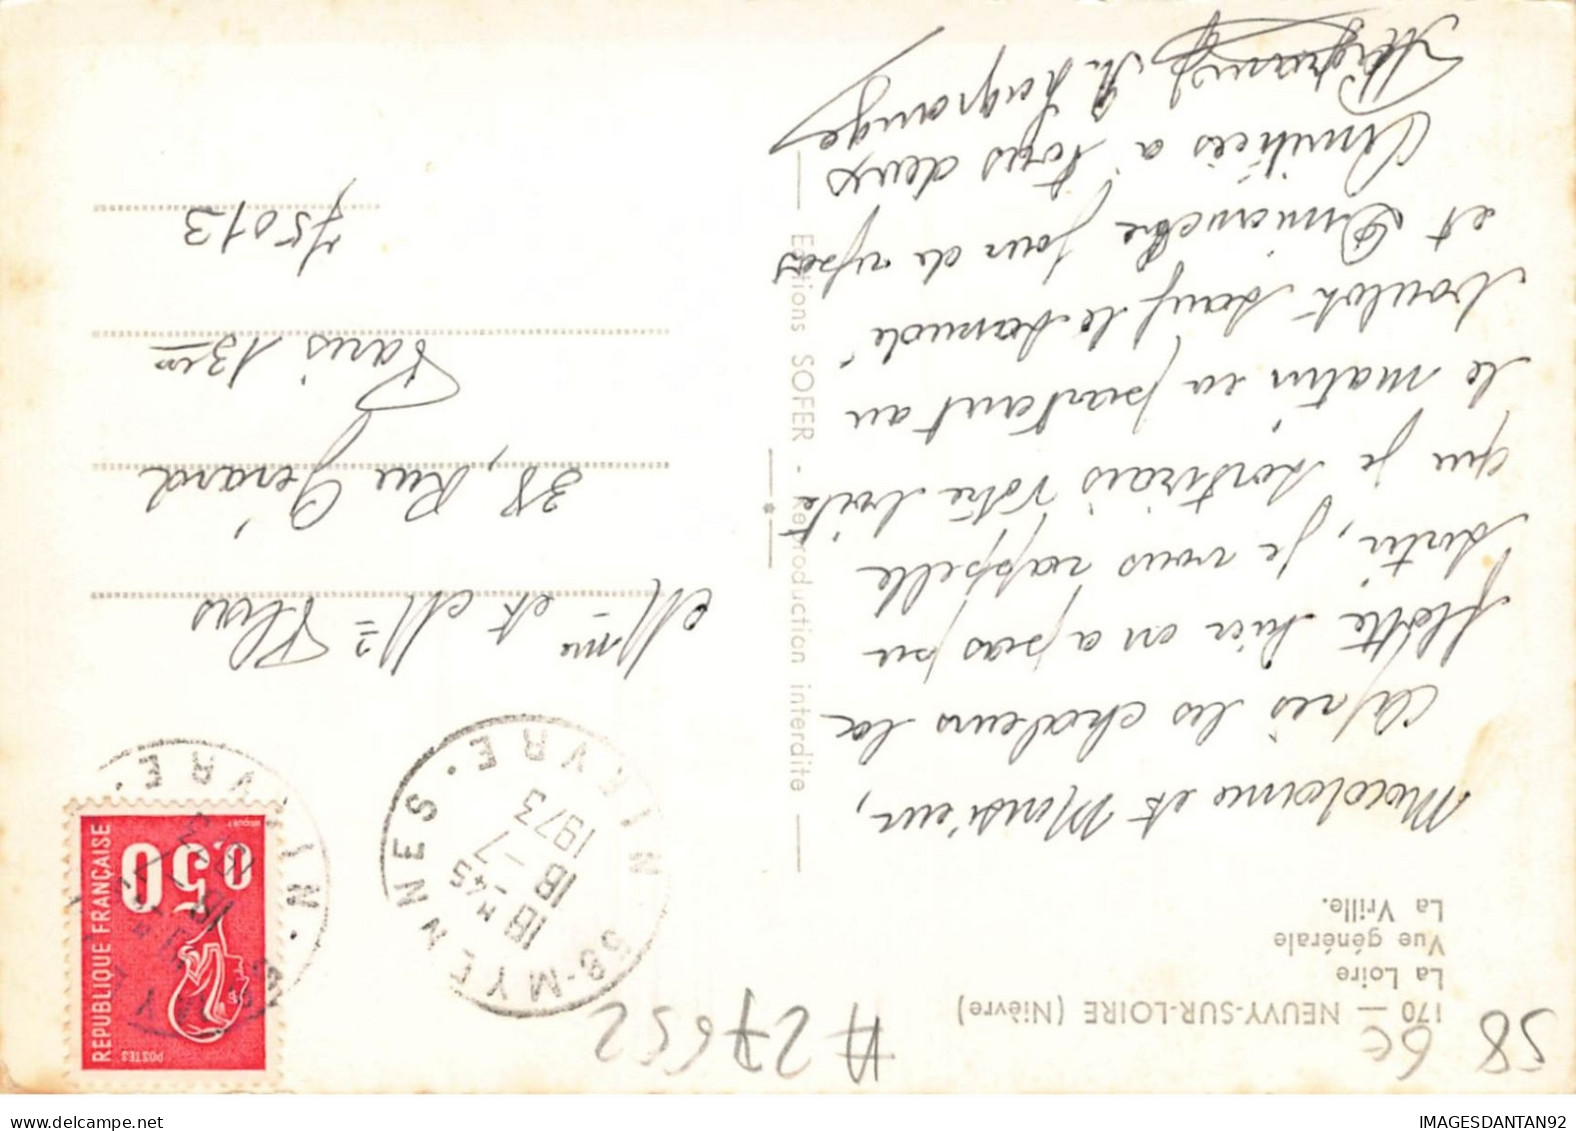 170 — NEUVY-SUR-LOIRE (Nièvre)
La Loire
Vue générale
La Vrille.
Madame et Monsieur,
Après les chaleurs la
flotte hier on a pas pu
sortir, je vous rappelle
que je sortirais votre boite
le matin en partant au
boulot sauf le samedi
et Dimanche jour de repos
Amitiés à tous deux
M. Lagrange
Editions SOFER - Reproduction interdite
Mme et Mr Plas
38, Rue Gérard
Paris 13em
75013
58-MYENNES
NIEVRE
18 H 45
18 -7
1973
0,50
REPUBLIQUE FRANÇAISE
POSTES
58
6€
#27652
IMAGESDANTAN92
www.delcampe.net